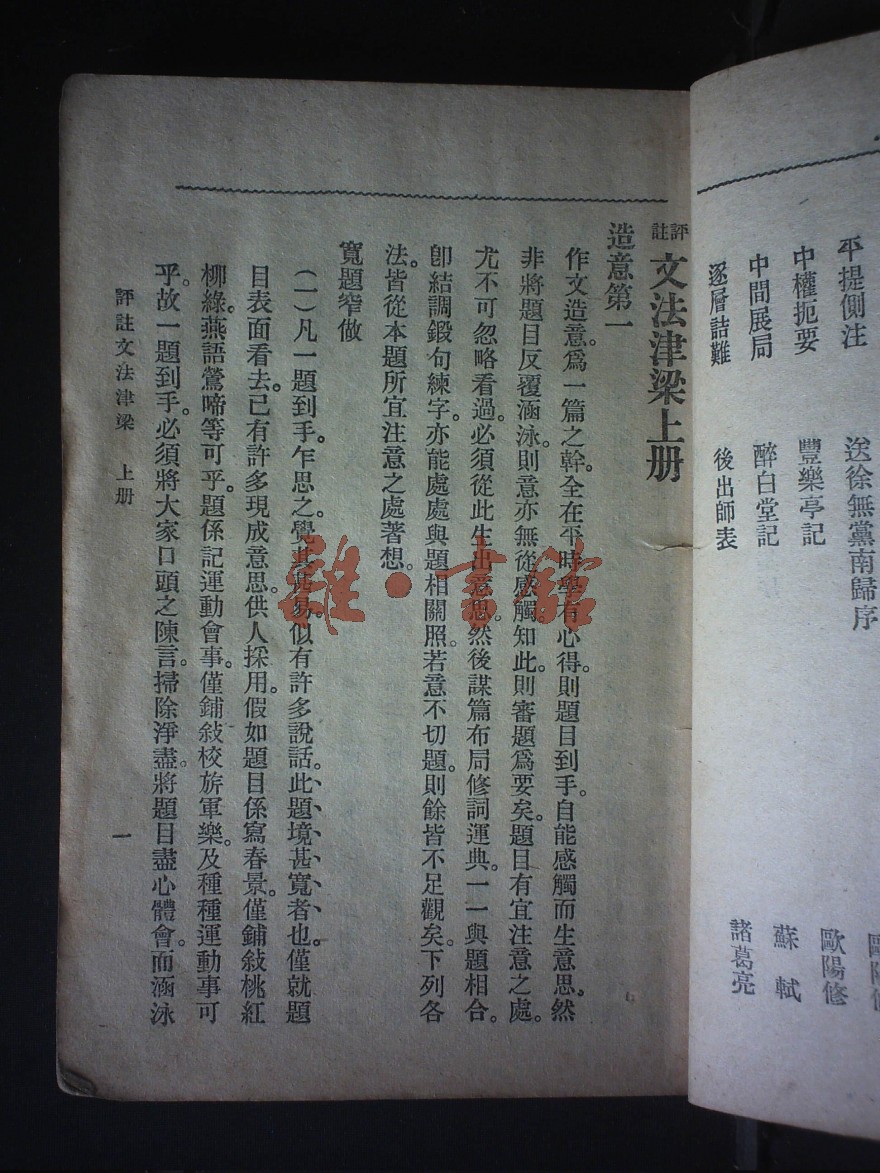 平提側注 送徐無黨南歸序
中權扼要 豐樂亭記 歐陽修
中間展局 醉白堂記 蘇軾
逐層詰難 後出師表 諸葛亮
評註文法津梁上册
造意第一
作文造意。爲一篇之幹。全在平時學有心得。則題目到手。自能感觸而生意思。然
非將題目反覆涵泳。則意亦無從感觸。知此。則審題爲要矣。題目有宜注意之處。
尤不可忽略看過。必須從此生出意思。然後謀篇布局修詞運典。一一與題相合。
卽結調鍛句練字。亦能處處與題相關照。若意不切題。則餘皆不足觀矣。下列各
法。皆從本題所宜注意之處著想。
寬題窄做
(一)凡一題到手。乍思之。覺其甚易。似有許多說話。此題境甚寬者也。僅就題
目表面看去。已有許多現成意思。供人採用。假如題目係寫春景。僅鋪敍桃紅
柳綠。燕語鶯啼等可乎。題係記運動會事。僅鋪敍校旂軍樂。及種種運動事可
乎。故一題到手。必須將大家口頭之陳言。掃除淨盡。將題目盡心體會。而涵泳
評註文法津梁 上册 一
雜·書館